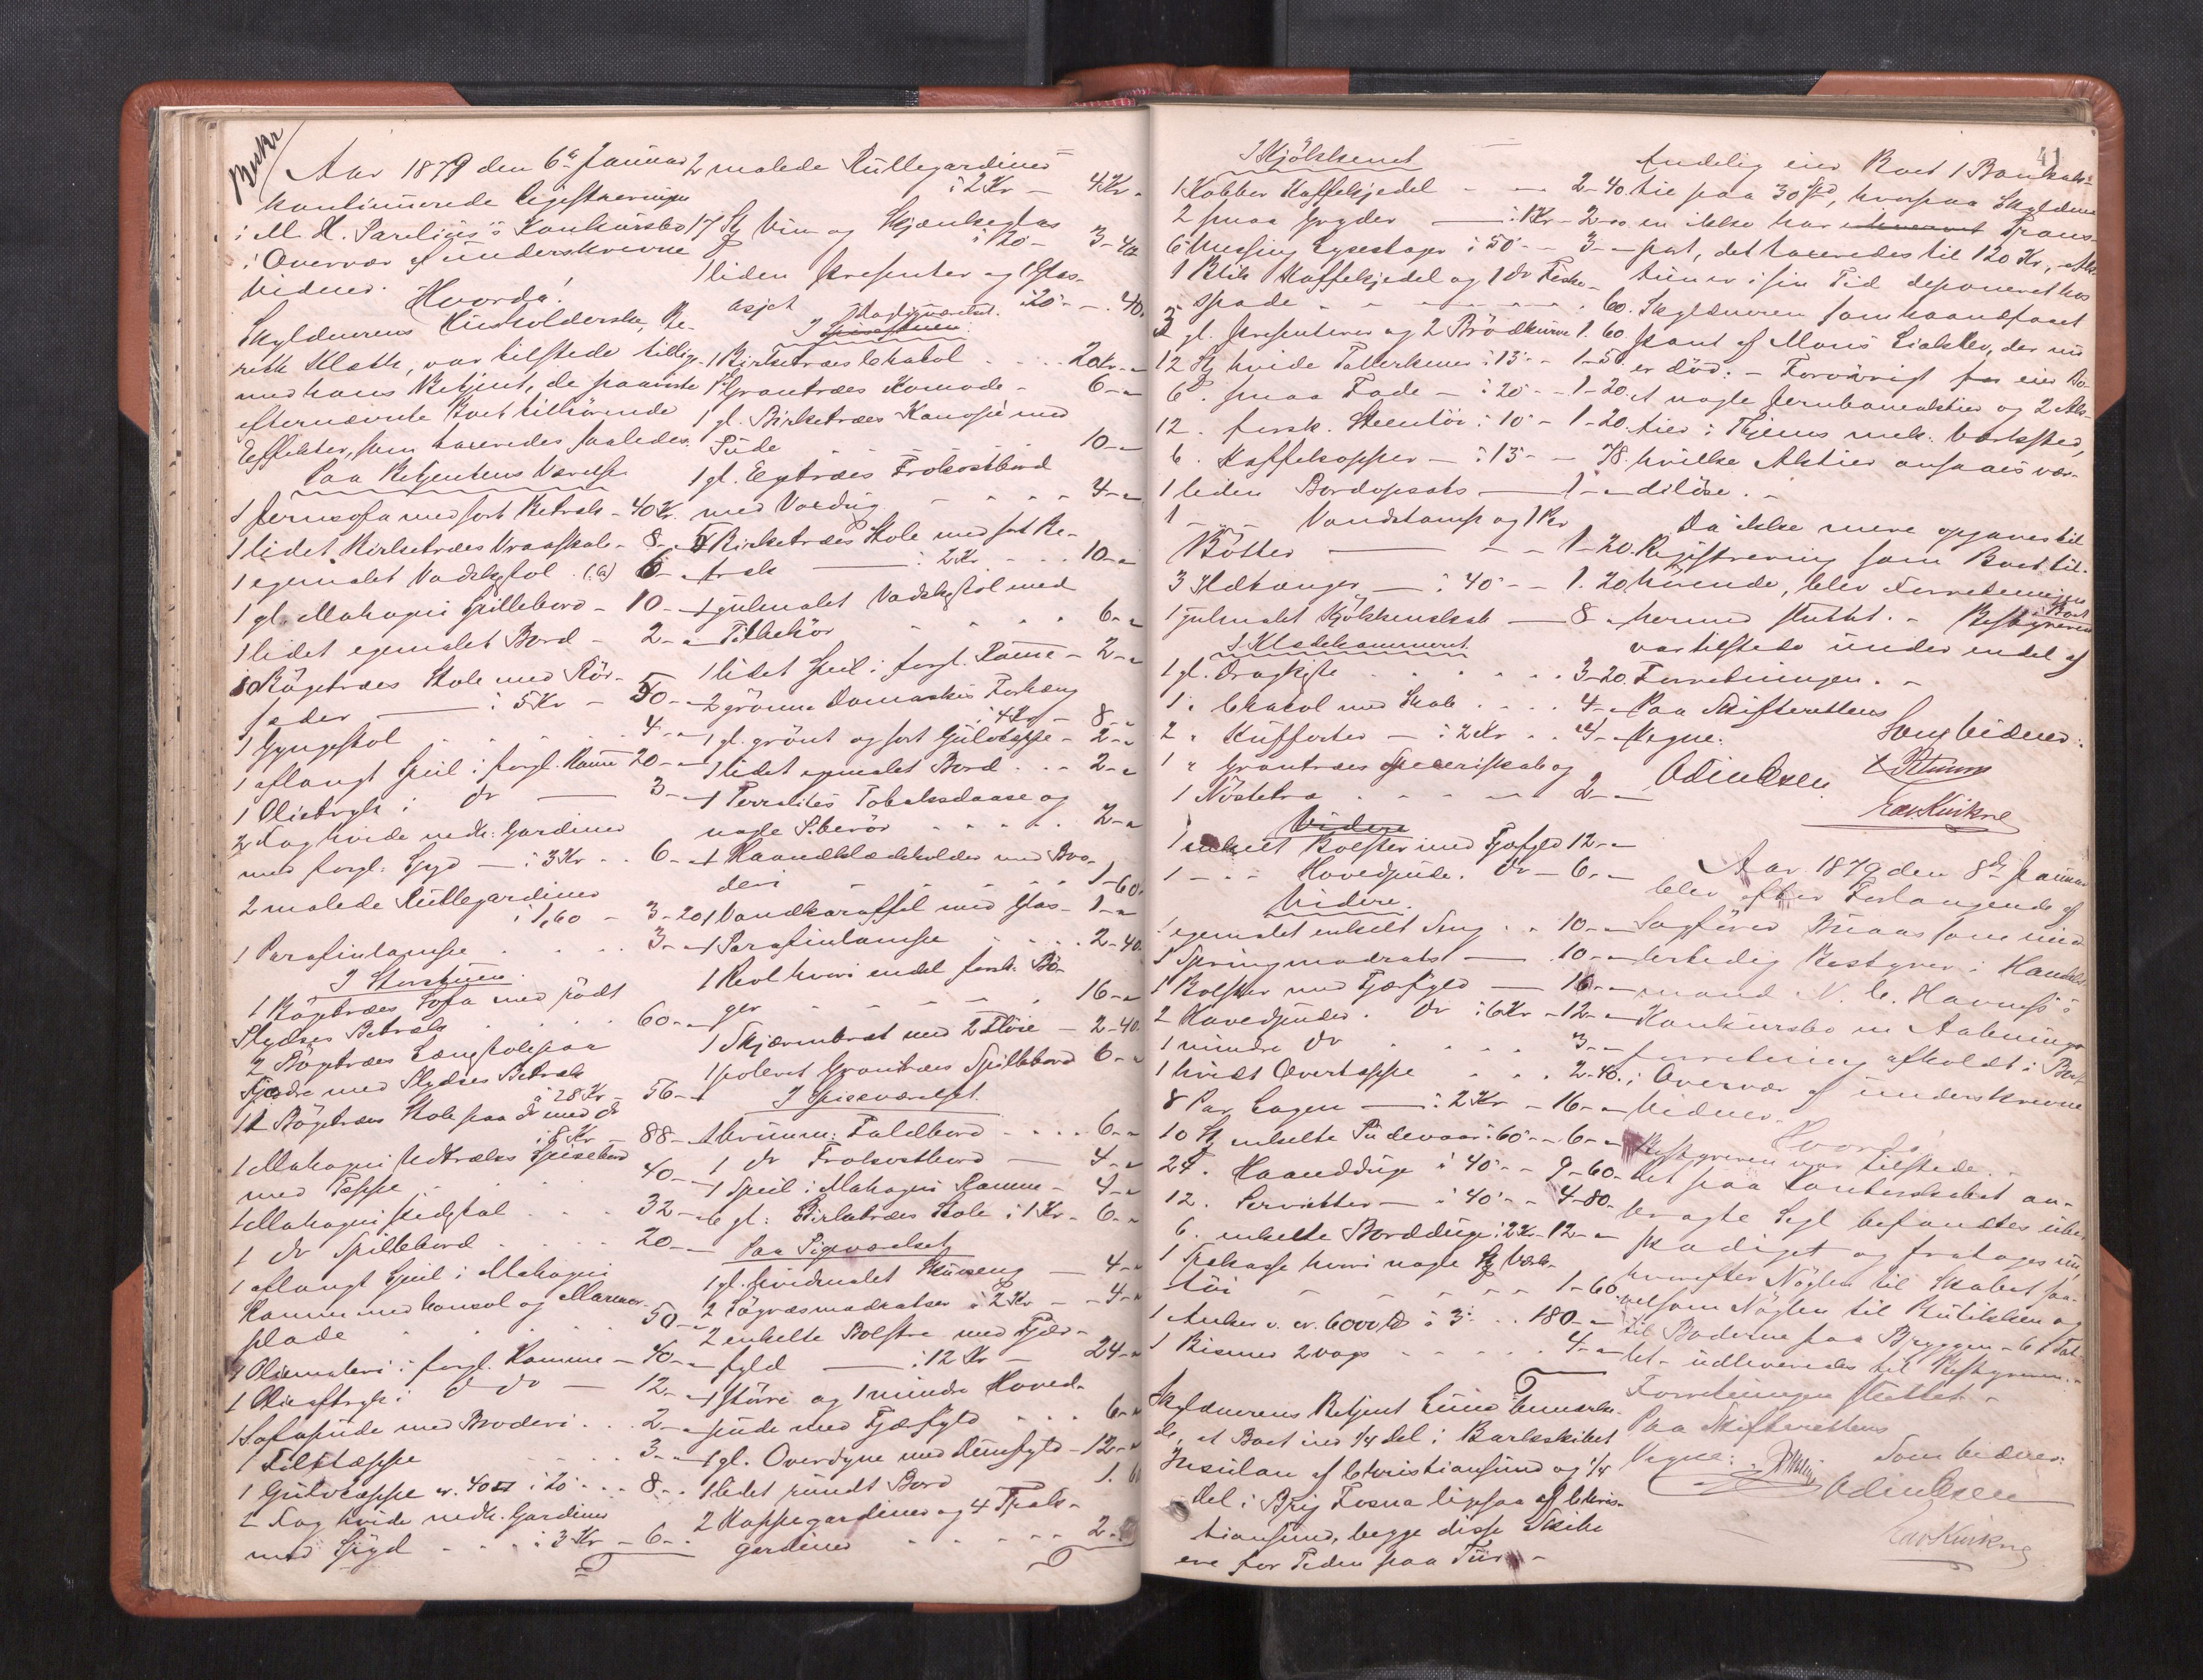 Aar 1879 den 6te Januar
kontinuerede Registreringen
i M. H. Parelius's Konkursbo
i Overvær af underskrevne
Vidner.
Hvorda!
Skyldnerens Huusholderske, Be-
rith Kleth, var tilstede tillige-
med hans Betjent, de paaviste
efternævnte Boet tilhørende
Effekter, som taxeredes saaledes.
Paa Betjentens Værelse
1 Jernsofa med sort Betræk - 40 Kr.
1 lidet Birketræes Vraaskab - 8 -
1 egemalet Vadskestol 6 -
1 gl. Mahogni Spillebord - 10 -
1 lidet egemalet Bord - 2 -
10 Bøgetræes Stole med Rør-
sæder - à 5 Kr - 50 -
1 Gyngestol 4 -
1 aflangt Speil i forgl. Ramme 20 -
1 Olietryk i do - 3 -
2 Fag hvide nedh. Gardiner
med forgl. Gesims - à 3 Kr - 6 -
2 malede Rullegardiner
à 1,60 - 3-20
1 Parafinlampe 3 -
I Storstuen.
1 Bøgetræes Sofa med rødt
Plydses Betræk 60 -
2 Bøgetræes Lænestole paa
Fjædre med Plydses Betræk
à 28 Kr - 56 -
11 Bøgetræes Stole paa do med do
à 8 Kr - 88 -
1 Mahogni Udtræks Spisebord
med Teppe 40 -
1 Mahogni 32 -
1 do Spillebord 20 -
1 aflangt Speil i Mahogni
Ramme med Konsol og Marmor-
plade 50 -
Oliemaleri i forgl. Ramme - 40 -
1 Olietryk i do do - 12 -
1 Sofapude med Broderi 2 -
1 Filttæppe 3 -
1 Gulvtæppe 8 -
2 Fag hvide nedh. Gardiner
med à 3 Kr - 6 -
2 malede Rullegardiner
à 2 Kr - 4 Kr -
17 St Vin og Skjænkeglas
à 20 - 3-40
1 liden Presenter og 1 Glas-
asjet 20 - 40.
I Dagligværelset.
1 Birketræes Chatol 20 Kr -
1 Grantræes Komode - 6 -
1 gl. Birketræes Kanapé med
Pude 10 -
1 gl. Egetræes Frokostbord
med Voxdug 4 -
5 Birketræes Stole med sort Be-
træk - à 2 Kr 10 -
1 gulmalet Vadskestol med
Tilbehør 6 -
1 lidet Speil i forgl. Ramme - 2 -
2 grønne Damaskes Forhæng
à 4 Kr - 8 -
1 gl. grønt og sort Gulvteppe - 2 -
1 lidet egemalet Bord 2 -
1 Terralites Tobaksdaase og
nogle Piberør 2 -
1 Haandklædeholder med Bro-
deri 1-60
1 Vandkaraffel med Glas - 1 -
1 Parafinlampe 2-40.
1 Reol hvori endel forsk. Bø-
ger 16 -
1 Skjærmbræt med 2 Fløie - 2-40.
1 poleret Grantræes Spillebord 6 -
I Spiseværelset.
1 Faldbord 6 -
1 do Frokostbord - 4 -
1 Speil i Mahogni Ramme - 4 -
6 gl. Birketræes Stole à 1 Kr - 6 -
Paa Pigeværelset
1 gl. hvidmalet 4 -
2 Søgræsmadratser à 2 Kr - 4 -
2 enkelte Bolstre med Fjær-
fyld - à 12 Kr - 24 -
1 større og 1 mindre Hoved-
pude med Fjærfyld 6 -
1 gl. Overdyne med Duunfyld - 12 -
1 lidet rundt Bord 1. 60
2 Kappegardiner og 4 Træk-
gardiner 2.
41
I Kjøkkenet
1 Kobber Kaffekjedel 2-40.
2 smaa Gryder - à 1 Kr - 2-00
6 Messing Lysestager à 50 - 3 -
1 Blik Kaffekjedel og 1 do Fiske-
spade 60.
3 gl. Presentere og 2 Brødkurve 1. 60
12 St hvide Tallerkener à 13 - 1-56
6 " smaa Fade - à 20 - 1-20.
12 . forsk. Steentøi à 10 - 1-20.
6 . Kaffekopper - à 13 - 78.
1 liden Bordopsats - 1 -
1 Vandstamp og 1 Par
Bøtter 1-20.
3 Ildtænger - à 40 - 1. 20
1 gulmalet Kjøkkenskab - 8 -
I Klædekammeret
1 gl. Dragkiste 3-20.
1 " Chatol med Skab 4 -
2 " Kufferter - à 2 Kr 4 -
1 " Grantræes Speceriskab og
1 Nøstetræ 2 -
Videre
1 enkelt Bolster med Fjæfyld 12 -
1 - Hovedpude. do - 6 -
Videre.
1 egemalet enkelt Seng 10 -
1 Springmadrats - 10 -
1 Bolster med Fjæfyld - 16 -
2 Hovedpuder. do à 6 Kr - 12 -
1 mindre do 3 -
1 hvidt Overteppe 2-40.
8 Par Lagen - à 2 Kr - 16 -
10 St enkelte Pudevaar à 60 - 6 -
24 . Haandduge à 40 - 9-60
12 . Servietter - à 40 - 4-80
6 . enkelte Borddúge à 2 Kr - 12 -
1 hvori nogle St Værk-
tøi 1-60
1 Anker v. ca. 6000 à 3 180 -
1 Bismer 2 vogs 4 -
Skyldnerens Betjent Lund bemærke-
de, at Boet eier 1/4 Del i Barkskibet
Insulan af Christiansund og 1/4
Del i Brig Fosna ligesaa af Chris-
tiansund, begge disse Skibe
ere for Tiden paa Tur -
Endelig eier Boet 1 Bankak-
tie paa 30 Spd, hvorpaa Skyldne-
en ikke har Trans-
port, det taxeredes til 120 Kr, Ak-
tien er i sin Tid deponeret hos
Skyldneren som haandfaaet
Pant af Mons der nu
er død. - Forøvrigt eier Bo-
et nogle Jernbaneaktier og 2 Ak-
tier i Thjems mek. Værksted,
hvilke Aktier ansaaes vær-
diløse. -
Da ikke mere opgaves til
Registrering som Boet til-
hørende, blev Forretningen
hermed sluttet. - Bestyreren i Boet
var tilstede under endel af
Forretningen. -
Paa Skifterettens
Vegne: Som Vidner:
Odin Olsen
Kvikne
Aar 1879 den 8de Januar
blev efter Forlangende af
Sagfører som mid-
lertidig Bestyrer i Handels-
mand N. C. Havnes's
Konkursbo en Aabnings-
forretning afholdt i Boet
i Overvær af underskrevne
Vidner.
Hvorda!
Bestyreren var tilstede. -
Det paa Kontorskabet an-
bragte Segl befandtes ube-
skadiget og fratoges nu,
hvorefter Nøglen til Skabet saa-
velsom Nøglen til Butikken og
til Boderne paa Bryggen - 6 i Tal-
let - udleveredes til Bestyreren. -
Forretningen sluttet. -
Paa Skifterettens
Vegne: Som Vidner:
Odin Olsen
Kvikne